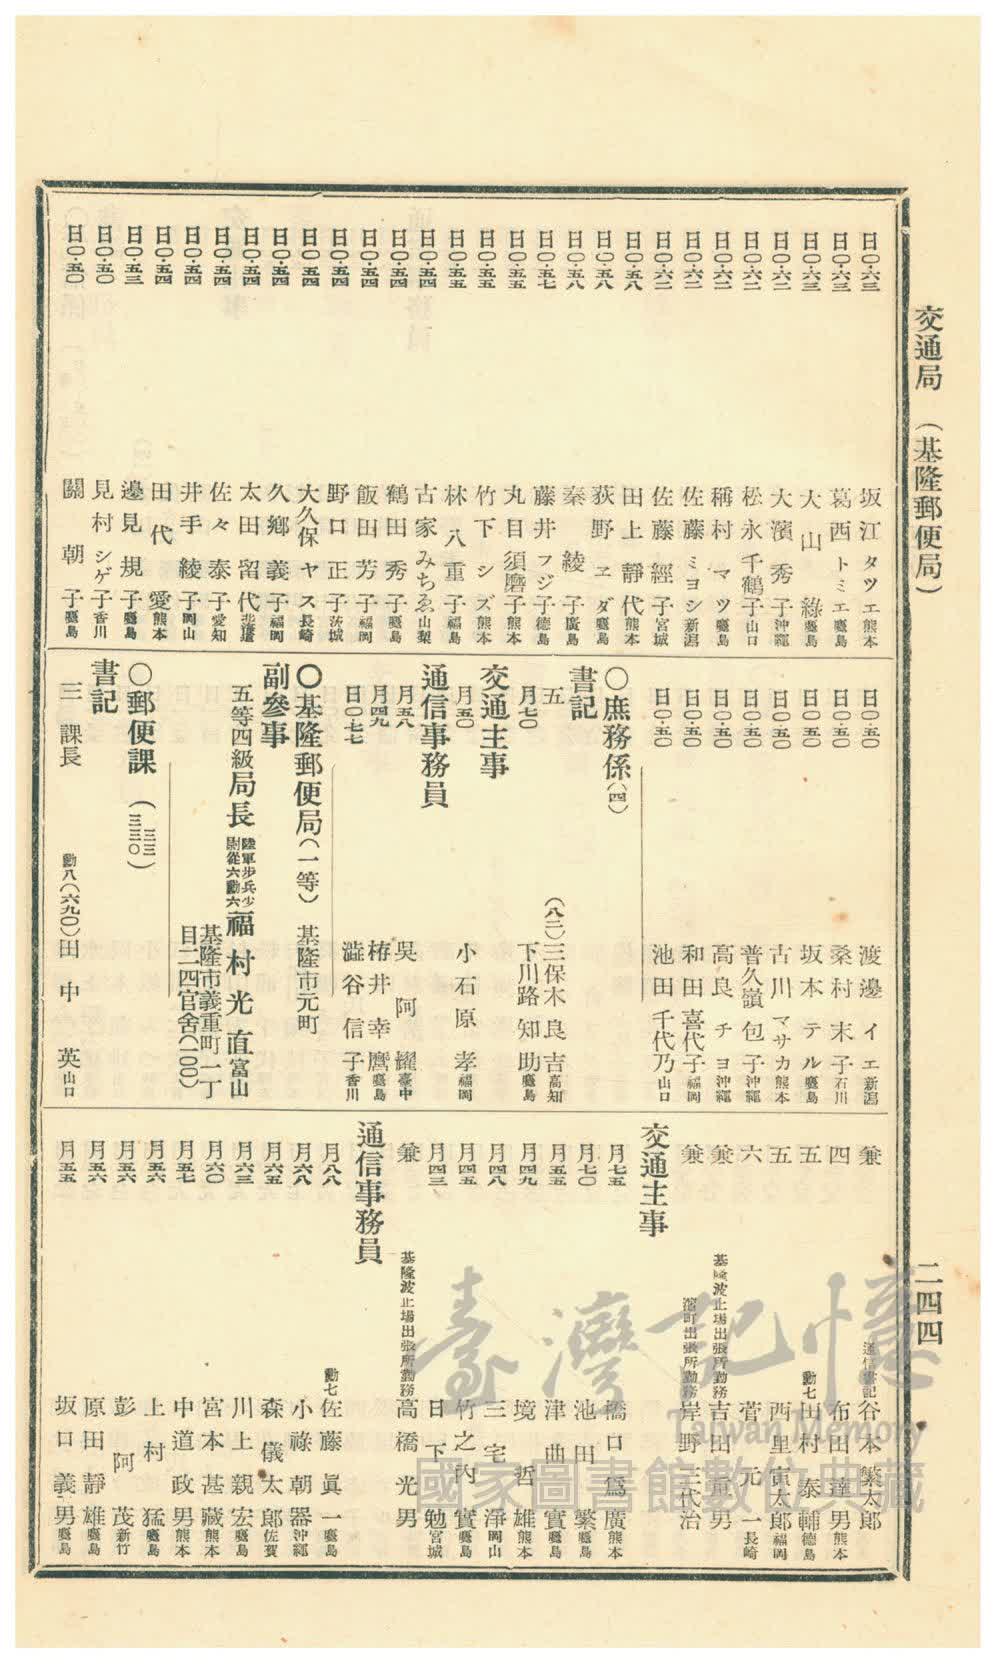 交通局 (基隆郵便局)
二四四
日〇·六三 坂江タツエ 熊本
日〇·六三 葛西トミエ 鹿島
日〇·六三 大山綠 鹿島
日〇·六二 大濱秀子 沖繩
日〇·六二 松永千鶴子 山口
日〇·六二 稱村マツ 鹿島
日〇·六二 佐藤ミヨシ 新潟
日〇·六二 佐藤經子 宮城
日〇·五八 田上靜代 熊本
日〇·五八 荻野ヱダ 鹿島
日〇·五八 秦綾子 廣島
日〇·五七 藤井フジ子 德島
日〇·五五 丸目須磨子 熊本
日〇·五五 竹下シズ 熊本
日〇·五五 林八重子 福島
日〇·五四 古家みちゑ 山梨
日〇·五四 鶴田秀子 鹿島
日〇·五四 飯田芳子 福岡
日〇·五四 野口正子 茨城
日〇·五四 大久保ヤス 長崎
日〇·五四 久鄕義子 福岡
日〇·五四 太田留代 北海道
日〇·五四 佐々泰子 愛知
日〇·五四 井手綾子 岡山
日〇·五四 田代愛 熊本
日〇·五三 邊見規子 鹿島
日〇·五〇 見村シゲ子 香川
日〇·五〇 關朝子 鹿島
日〇·五〇 渡邊イエ 新潟
日〇·五〇 桑村末子 石川
日〇·五〇 坂本テル 鹿島
日〇·五〇 古川マサカ 熊本
日〇·五〇 普久嶺包子 沖繩
日〇·五〇 高良チヨ 沖繩
日〇·五〇 和田喜代子 福岡
日〇·五〇 池田千代乃 山口
〇庶務係(八四)
書記
五 (八二)三保木良吉 高知
月七〇 下川路知助 鹿島
交通主事
月五〇 小石原孝 福岡
通信事務員
月五八 吳阿繼 臺中
月四九 椿井幸麿 鹿島
日〇·七七 澁谷信子 香川
〇基隆郵便局(一等) 基隆市元町
副參事
五等四級 局長 陸軍步兵少尉從六勳六 福村光直 富山
基隆市義重町一丁目二四官舍(一〇〇)
〇郵便課 (三三三三〇)
書記
三 課長 勳八(六九〇)田中英 山口
兼 通信書記 谷本繁太郎
四 布田達男 熊本
五 勳七 山村泰輔 德島
五 西里寅太郎 福岡
六 菅元一 長崎
兼 基隆波止場出張所勤務 吉田重男
兼 濱町出張所勤務 岸野三代治
交通主事
月七五 橋口爲廣 熊本
月七〇 池田繁 鹿島
月五五 津曲實 鹿島
月四九 境哲雄 熊本
月四八 三宅淨 岡山
月四五 竹之內實 鹿島
月四三 日下勉 宮城
兼 基隆波止場出張所勤務 高橋光男
通信事務員
月八八 勳七 佐藤眞一 鹿島
月六八 小祿朝器 沖繩
月六五 森儀太郎 佐賀
月六三 川上親宏 鹿島
月六〇 宮本甚藏 熊本
月五七 中道政男 熊本
月五六 上村猛 鹿島
月五六 彭阿茂 新竹
月五六 原田靜雄 鹿島
月五五 坂口義男 鹿島
臺灣記憶
Taiwan Memory
國家圖書館數位典藏